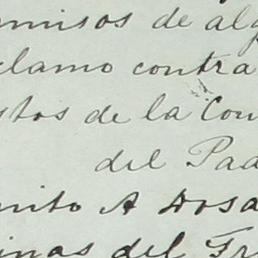 misos de al
clamo contra
stos de la Con
del Pad
nito A Rosa
inas del Fr